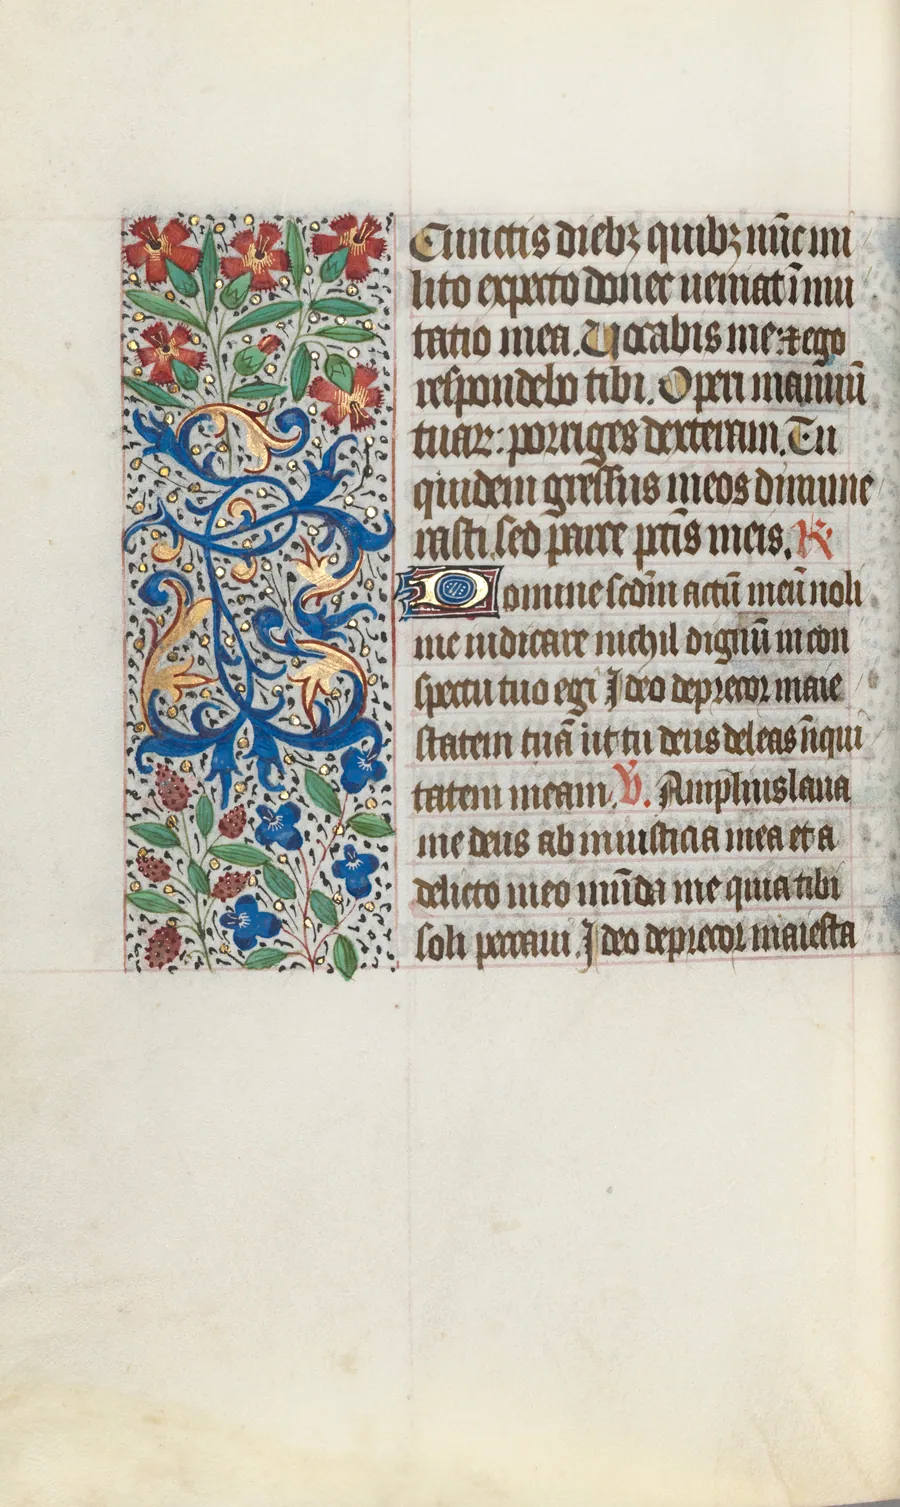 Cunctis diebꝫ quibꝫ nūc mi
lito expecto donec ueniat īmu
tatio mea. Uocabis me: ⁊ ego
respondebo tibi. Operi manuū
tuaꝝ: porriges dexteram. Tu
quidem gressus meos dinume
rasti, sed parce pctīs meis. R
Domine scdm̄ actū meū noli
me iudicare nichil dignū in con
spectu tuo egi Ideo deprecor maie
statem tuā ut tu deus deleas īiqui
tatem meam. V. Amplius laua
me deus ab iniusticia mea et a
delicto meo mūda me quia tibi
soli peccaui. Ideo deprecor maiesta